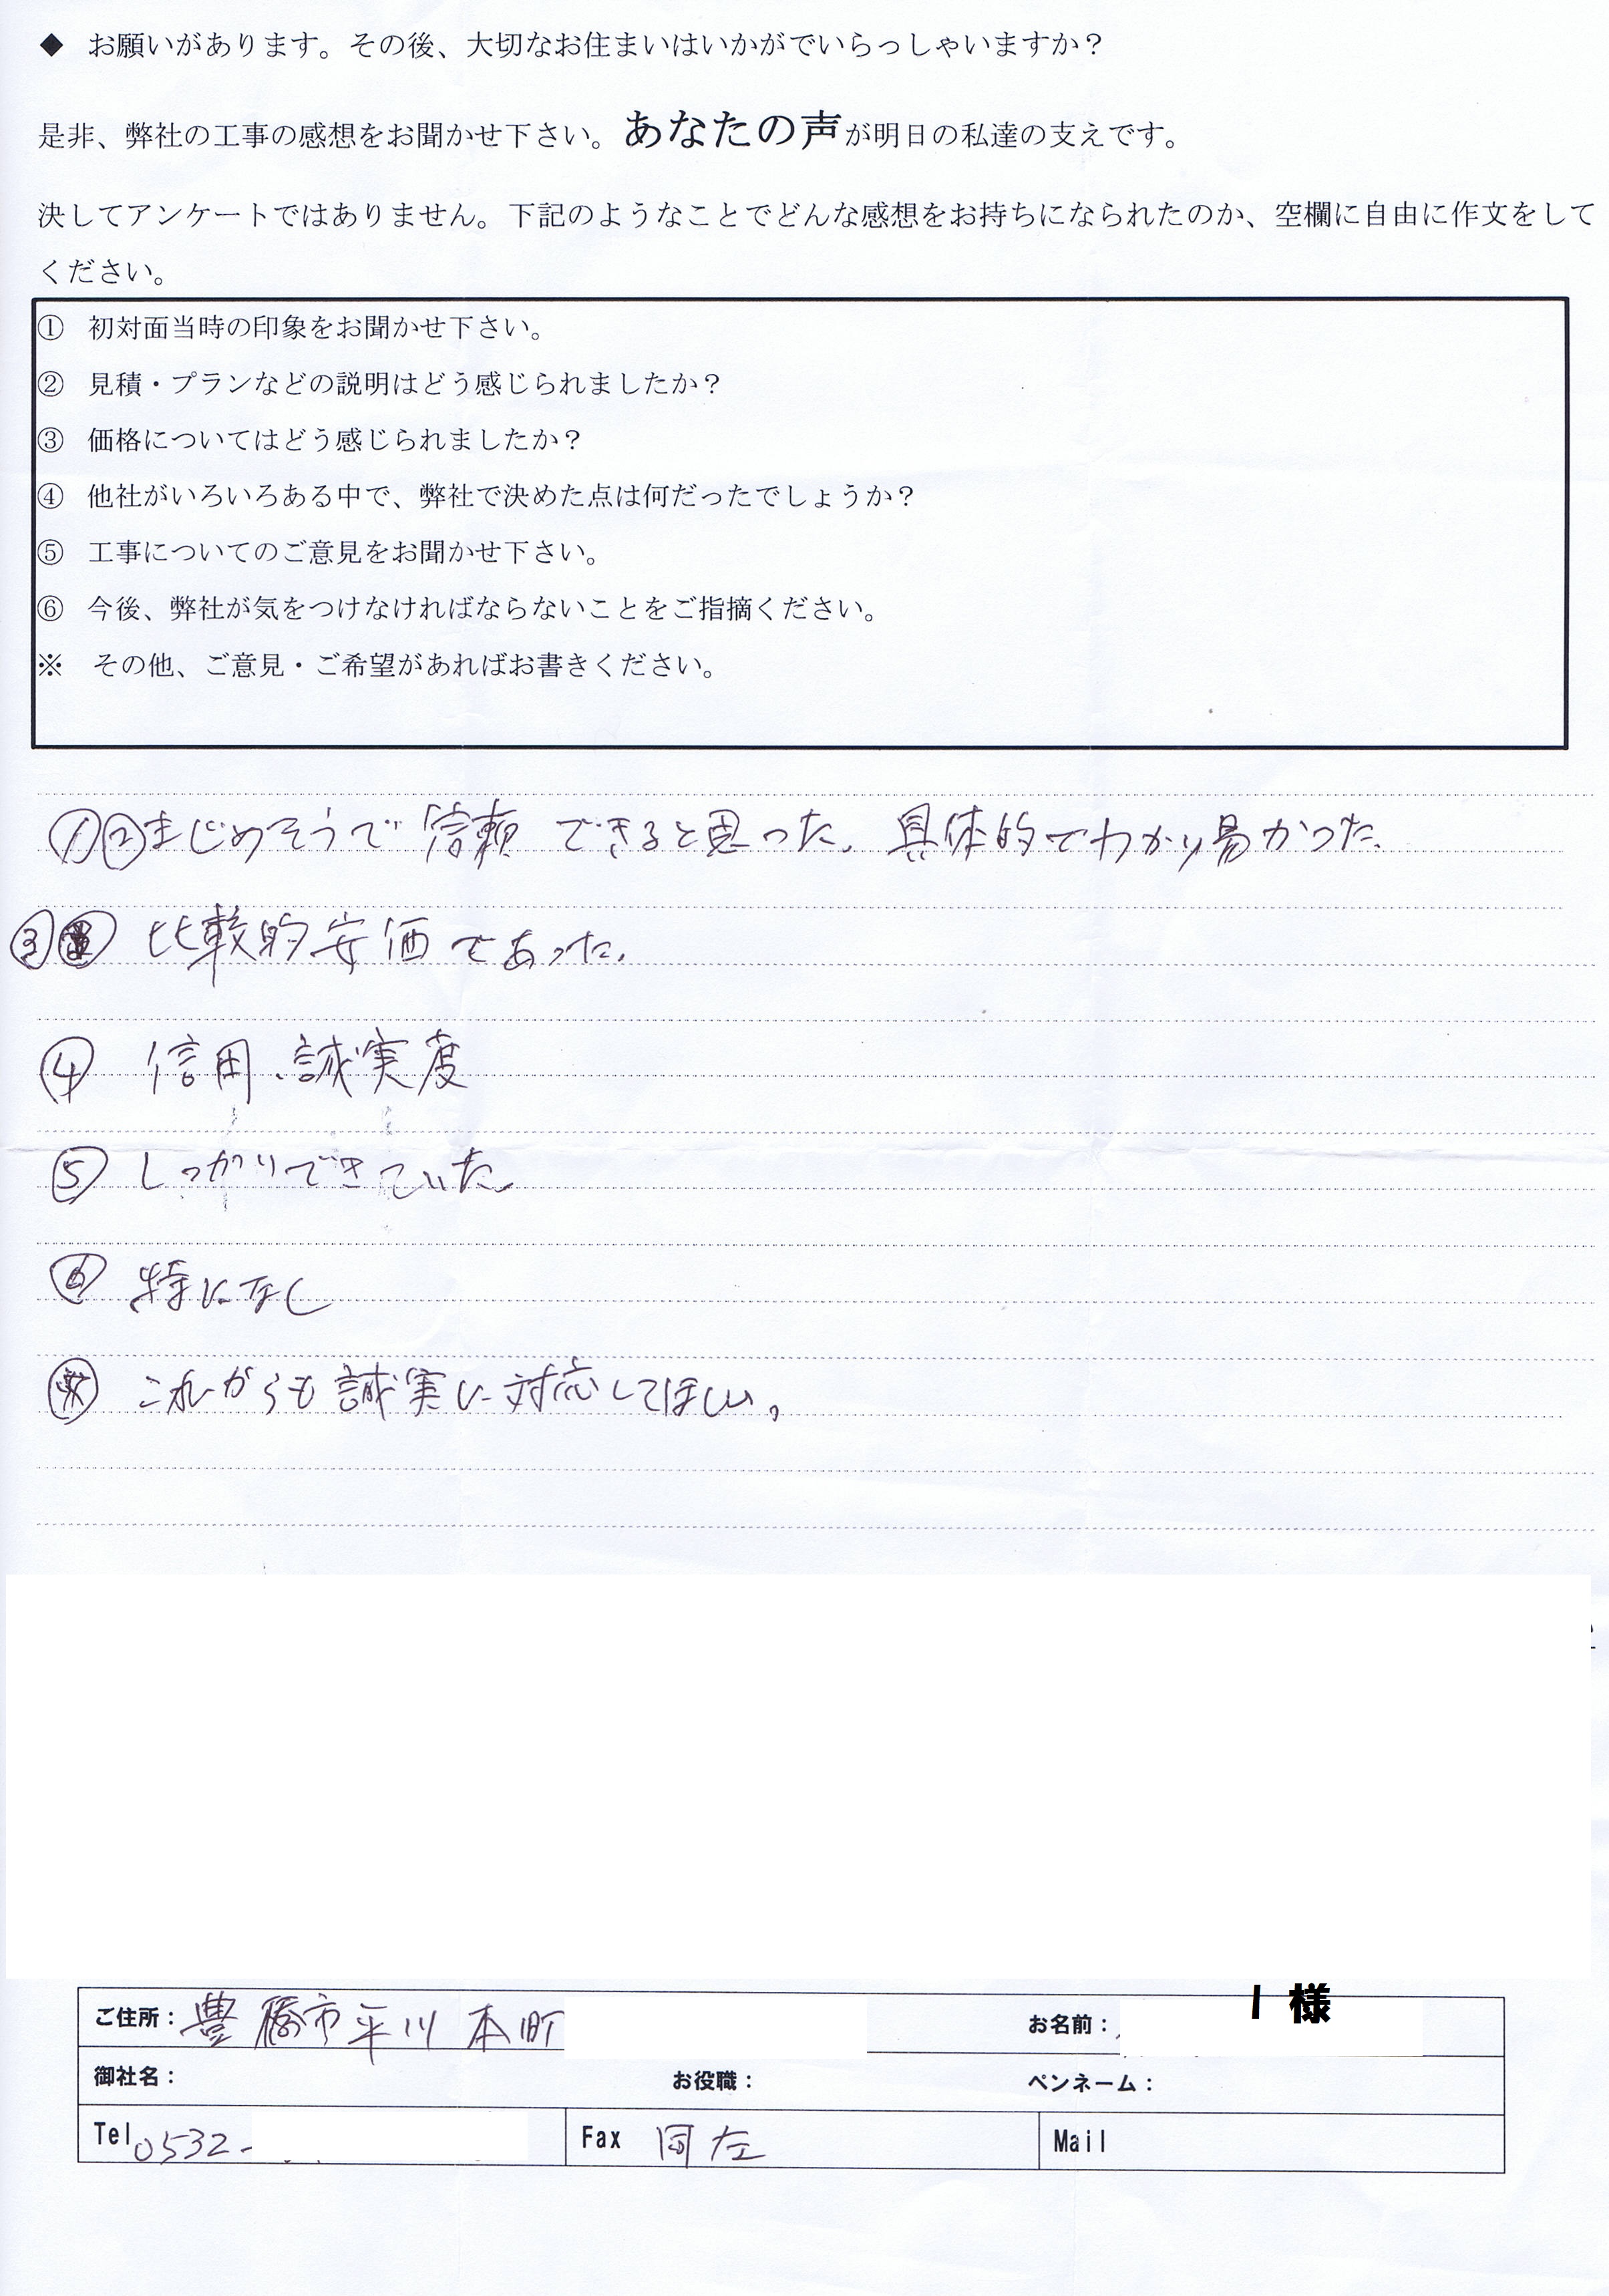 ◆ お願いがあります。その後、大切なお住まいはいかがでいらっしゃいますか？
是非、弊社の工事の感想をお聞かせ下さい。あなたの声が明日の私達の支えです。
決してアンケートではありません。下記のようなことでどんな感想をお持ちになられたのか、空欄に自由に作文をして
ください。
① 初対面当時の印象をお聞かせ下さい。
② 見積・プランなどの説明はどう感じられましたか？
③ 価格についてはどう感じられましたか？
④ 他社がいろいろある中で、弊社で決めた点は何だったでしょうか？
⑤ 工事についてのご意見をお聞かせ下さい。
⑥ 今後、弊社が気をつけなければならないことをご指摘ください。
※ その他、ご意見・ご希望があればお書きください。
①②まじめそうで信頼できると思った。具体的でわかり易かった。
③ 比較的安価であった。
④ 信用、誠実度
⑤ しっかりできていた。
⑥ 特になし
※ これからも誠実に対応してほしい。
ご住所：豊橋市平川本町 お名前： I 様
御社名： お役職： ペンネーム：
Tel 0532- Fax 同左 Mail